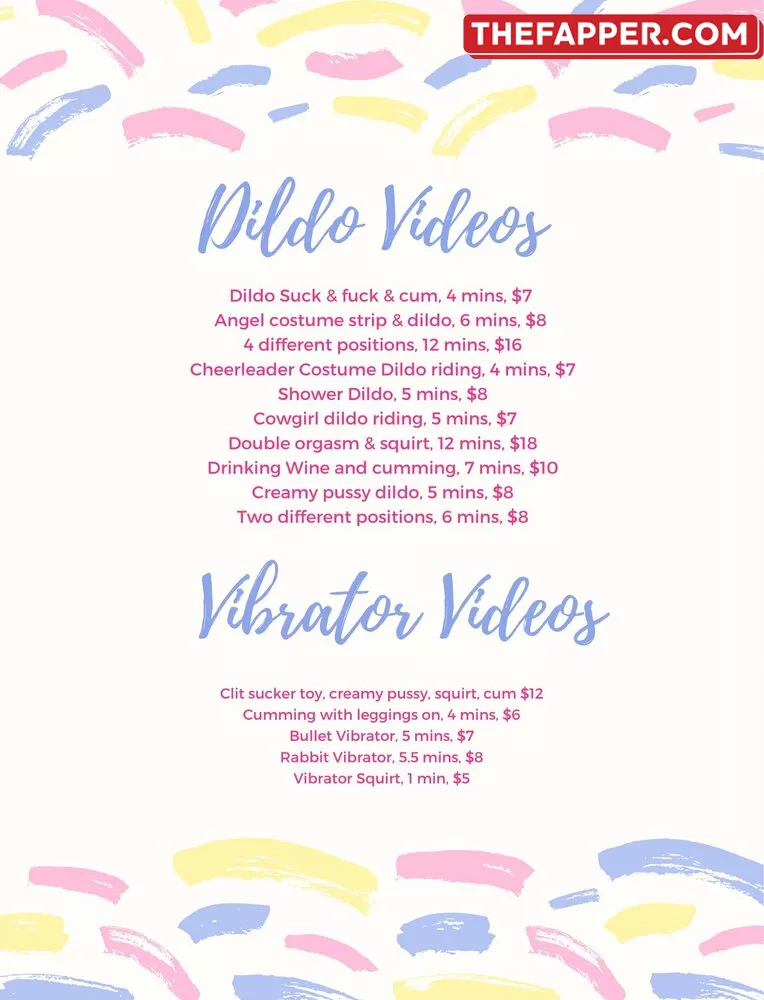 THEFAPPER.COM
Dildo Videos
Dildo Suck & fuck & cum, 4 mins, $7
Angel costume strip & dildo, 6 mins, $8
4 different positions, 12 mins, $16
Cheerleader Costume Dildo riding, 4 mins, $7
Shower Dildo, 5 mins, $8
Cowgirl dildo riding, 5 mins, $7
Double orgasm & squirt, 12 mins, $18
Drinking Wine and cumming, 7 mins, $10
Creamy pussy dildo, 5 mins, $8
Two different positions, 6 mins, $8
Vibrator Videos
Clit sucker toy, creamy pussy, squirt, cum $12
Cumming with leggings on, 4 mins, $6
Bullet Vibrator, 5 mins, $7
Rabbit Vibrator, 5.5 mins, $8
Vibrator Squirt, 1 min, $5